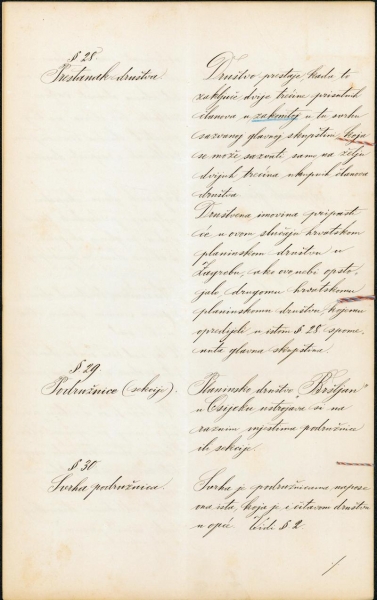 § 28.
Prestanak društva
Društvo prestaje, kada to
zaključe dvije trećine prisutnih
članova u zakonitoj u tu svrhu
sazvanoj glavnoj skupštini, koja
se može sazvati samo na želju
dvijuh trećina ukupnih članova
društva.
Društvena imovina pripast
će u ovom slučaju hrvatskom
planinskom društvu u
Zagrebu, ako ovo nebi opsto,
jalo, drugomu hrvatskomu
planinskomu društvu, kojemu
opredijeli u istom § 28 spome,
nuta glavna skupština.
§ 29.
Podružnice (sekcije).
Planinsko društvo "Bršljan"
u Osijeku ustrojava si na
raznim mjestima podružnice
ili sekcije.
§ 30
Svrha podružnica.
Svrha je podružnicama napose
ona ista, koja je i čitavom društvu
u opće Vidi § 2.